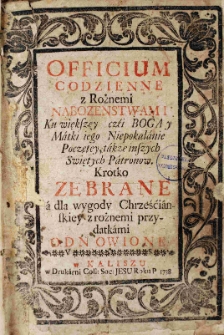 OFFICIUM
CODZIENNE
z Rożnemi
NABOZENSTWAMI
Ku większey czći BOGA y
Mátki iego Niepokalanie
Poczętey, także inszych
Swiętych Pátronow.
Krotko
ZEBRANE
á dla wygody Chrześćián-
skiey z rożnemi przy-
datkámi
ODNOWIONE
W KALISZU
w Drukárni Coll: Soc: JESU Roku P.